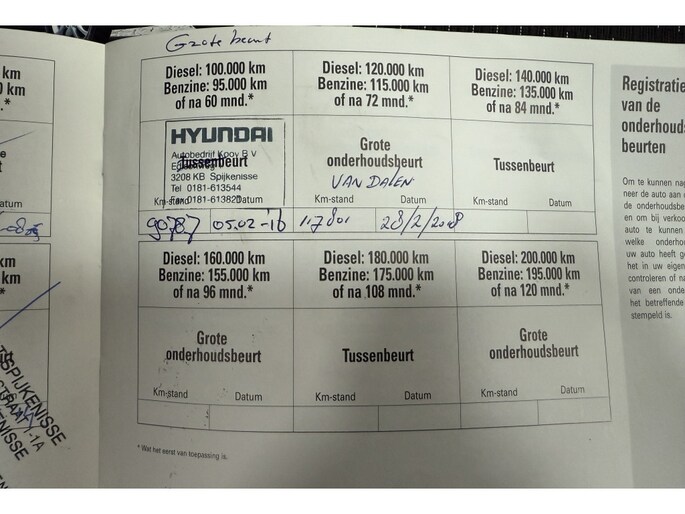 Grote beurt
km
km
.*
Diesel: 100.000 km
Benzine: 95.000 km
of na 60 mnd.*
Diesel: 120.000 km
Benzine: 115.000 km
of na 72 mnd.*
Diesel: 140.000 km
Benzine: 135.000 km
of na 84 mnd.*
HYUNDAI
Autobedrijf Kooy B.V
Tussenbeurt
3208 KB Spijkenisse
Tel 0181-613544
Km-stand
Datum
Grote
onderhoudsbeurt
VAN DALEN
Km-stand
Datum
Tussenbeurt
Km-stand
Datum
90787
05.02-'16
117801
28/2/2018
Diesel: 160.000 km
Benzine: 155.000 km
of na 96 mnd.*
Diesel: 180.000 km
Benzine: 175.000 km
of na 108 mnd.*
Diesel: 200.000 km
Benzine: 195.000 km
of na 120 mnd.*
Grote
onderhoudsbeurt
Km-stand
Datum
Tussenbeurt
Km-stand
Datum
Grote
onderhoudsbeurt
Km-stand
Datum
* Wat het eerst van toepassing is.
Registratie
van de
onderhouds
beurten
Om te kunnen nag
neer de auto aan d
de onderhoudsbe
en om bij verkoo
auto te kunnen
welke onderhou
uw auto heeft ge
het in uw eigen
controleren of na
van een onde
het betreffende
stempeld is.
atum
km
km
.*
SPIJKENISSE
-1A
NISSE